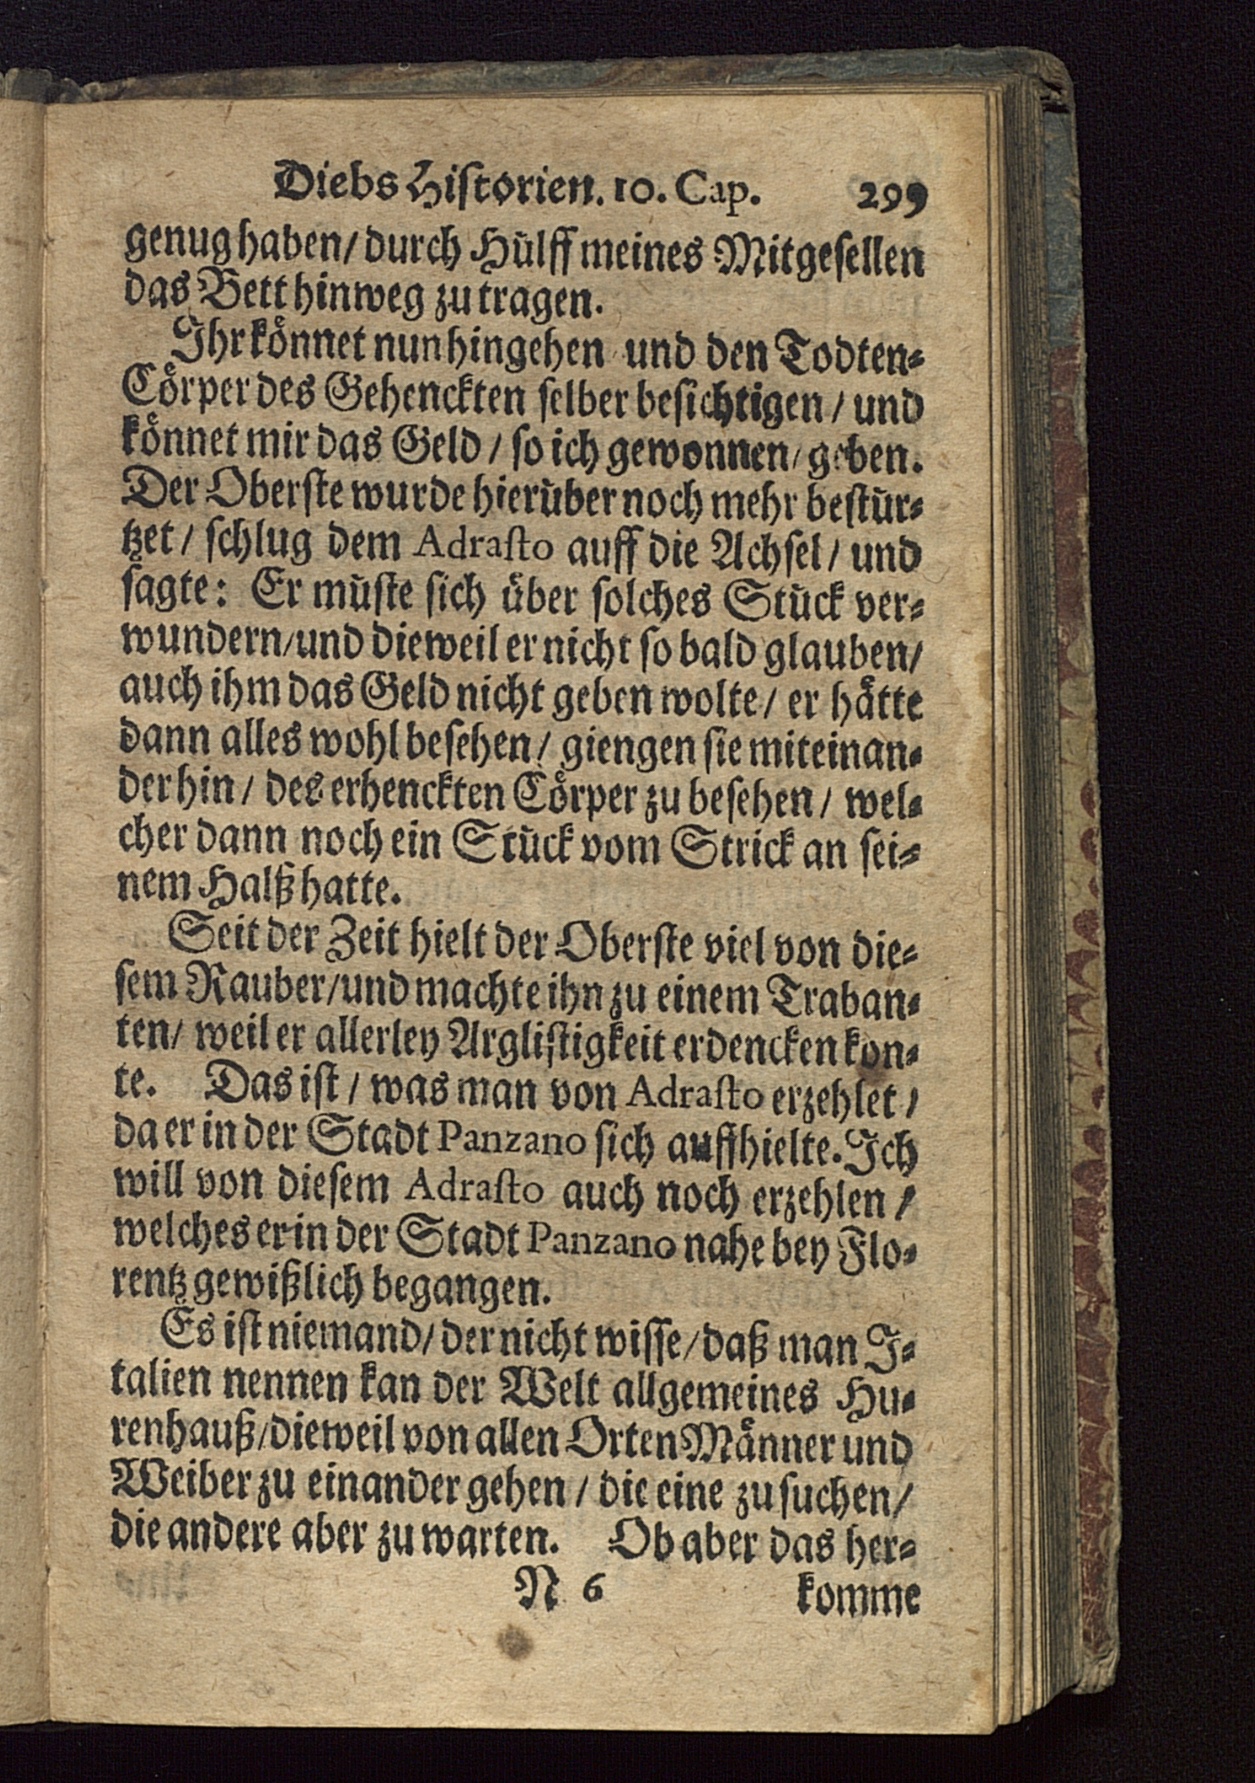 Diebs Historien. 10. Cap. 299
genug haben/ durch Hülff meines Mitgesellen
das Bett hinweg zu tragen.
Ihr könnet nun hingehen und den Todten-
Cörper des Gehenckten selber besichtigen / und
könnet mir das Geld / so ich gewonnen/ geben.
Der Oberste wurde hierüber noch mehr bestür-
tzet / schlug dem Adrasto auff die Achsel / und
sagte: Er müste sich über solches Stück ver-
wundern/und dieweil er nicht so bald glauben/
auch ihm das Geld nicht geben wolte / er hätte
dann alles wohl besehen / giengen sie miteinan-
der hin / des erhenckten Cörper zu besehen / wel-
cher dann noch ein Stück vom Strick an sei-
nem Halß hatte.
Seit der Zeit hielt der Oberste viel von die-
sem Rauber/und machte ihn zu einem Traban-
ten/ weil er allerley Arglistigkeit erdencken kon-
te. Das ist / was man von Adrasto erzehlet /
da er in der Stadt Panzano sich auffhielte. Ich
will von diesem Adrasto auch noch erzehlen /
welches er in der Stadt Panzano nahe bey Flo-
rentz gewißlich begangen.
Es ist niemand/ der nicht wisse/daß man I-
talien nennen kan der Welt allgemeines Hu-
renhauß/dieweil von allen Orten Männer und
Weiber zu einander gehen / die eine zu suchen/
die andere aber zu warten. Ob aber das her-
N 6 komme